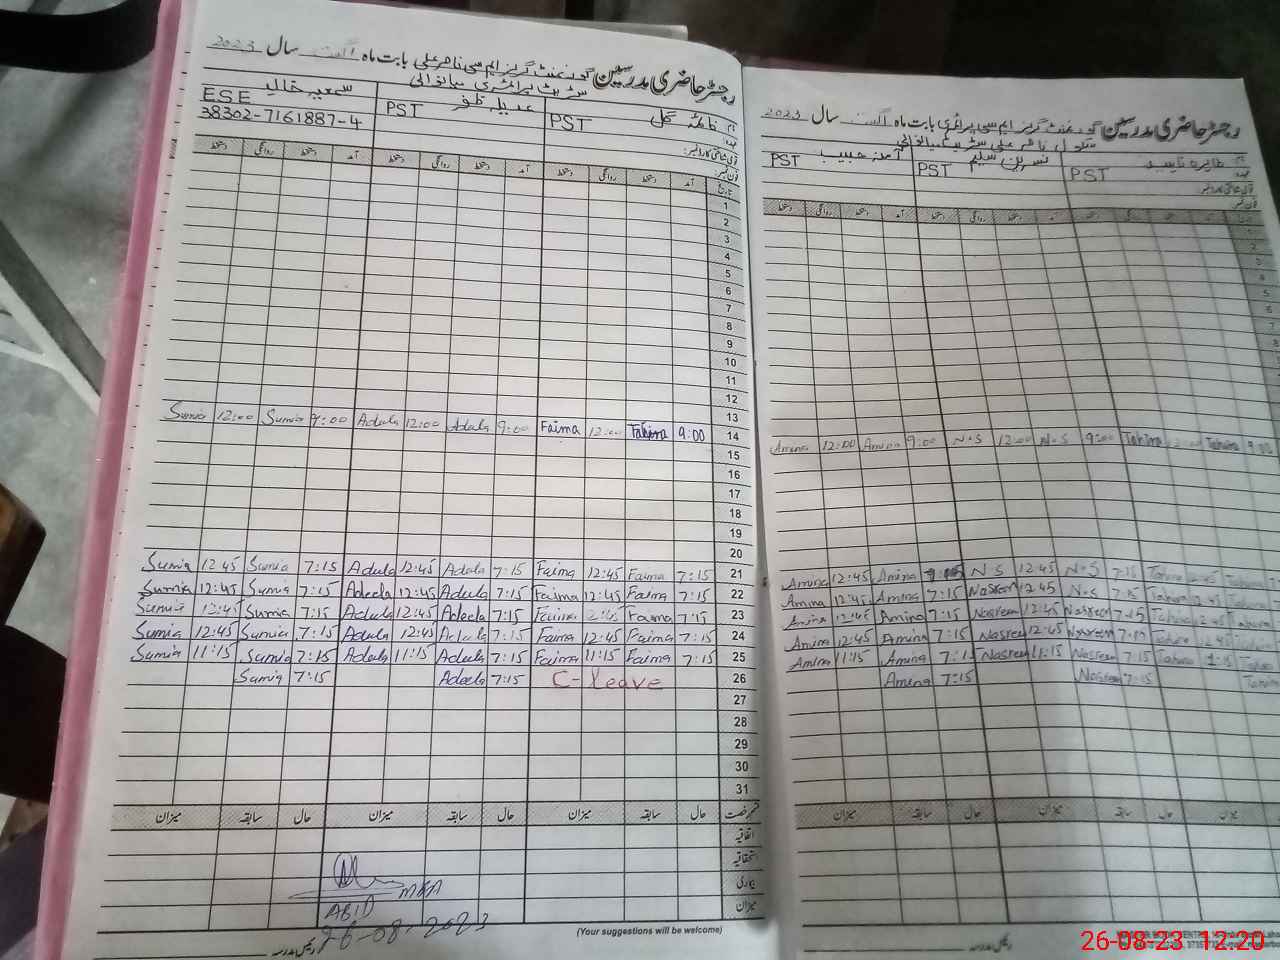 رجسٹر حاضری مدرسین گورنمنٹ گرلز ایم سی ناصر علی بابت ماہ اگست سال 2023
سٹریٹ پرائمری میانوالی
نام فائمہ گل عدیلہ ظفر سمعیہ خالد
عہدہ PST PST ESE
قومی شناختی کارڈ نمبر 38302-7161887-4
فون نمبر
تاریخ آمد دستخط روانگی دستخط آمد دستخط روانگی دستخط آمد دستخط روانگی دستخط
1
2
3
4
5
6
7
8
9
10
11
12
13
Sumia 12:00 Sumia 9:00 Adeela 12:00 Adeela 9:00 Faima 12:00 Tahira 9:00 14
15
16
17
18
19
20
Sumia 12 45 Sumia 7:15 Adeela 12:45 Adeela 7:15 Faima 12:45 Faima 7:15 21
Sumia 12:45 Sumia 7:15 Adeela 12:45 Adeela 7:15 Faima 12:45 Faima 7:15 22
Sumia 12:45 Sumia 7:15 Adeela 12:45 Adeela 7:15 Faima 2:45 Faima 7:15 23
Sumia 12:45 Sumia 7:15 Adeela 12:45 Adeela 7:15 Faima 12:45 Faima 7:15 24
Sumia 11:15 Sumia 7:15 Adeela 11:15 Adeela 7:15 Faima 11:15 Faima 7:15 25
Sumia 7:15 Adeela 7:15 C-leave 26
27
28
29
30
31
قسم رخصت حال سابقہ میزان حال سابقہ میزان حال سابقہ میزان
اتفاقیہ
استحقاقیہ
بیماری
میزان
ABID MEA
26-08-2023
رئیس مدرسہ
(Your suggestions will be welcome)
رجسٹر حاضری مدرسین گورنمنٹ گرلز ایم سی پرائمری بابت ماہ اگست سال 2023
سکول ناصر علی سٹریٹ میانوالی
نام طاہرہ نسرین سلیم آمنہ حبیب
عہدہ PST PST PST
قومی شناختی کارڈ نمبر
فون نمبر
آمد دستخط روانگی دستخط آمد دستخط روانگی دستخط آمد دستخط روانگی دستخط
Amina 12:00 Amina 9:00 N.S 12:00 N.S 9:00 Tahira 12:00 Tahira 9:00
Amina 12:45 Amina 7:15 N.S 12:45 N.S 7:15 Tahira 12:45 Tahira
Amina 12:45 Amina 7:15 Nasreen 12 45 N.S 7:15 Tahira 12:45 Tahira
Amina 12:45 Amina 7:15 Nasreen 12:45 Nasreen 7:15 Tahira 12:45 Tahira
Amina 12:45 Amina 7:15 Nasreen 12:45 Nasreen 7:15 Tahira 12:45 Tahira
Amina 11:15 Amina 7:15 Nasreen 11:15 Nasreen 7:15 Tahira Tahira
Amina 7:15 Nasreen 7:15 Tahira
حال سابقہ میزان حال سابقہ میزان
رئیس مدرسہ
26-08-23 12:20